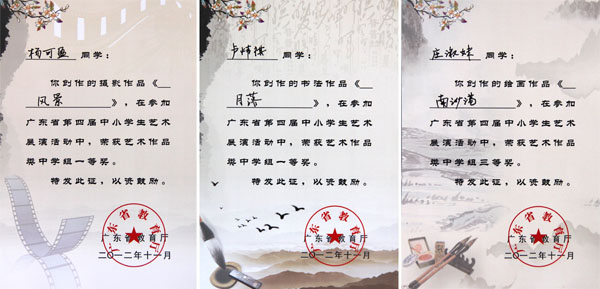 杨可盈 同学：
你创作的摄影作品《
风景 》，在参加
广东省第四届中小学生艺术
展演活动中，荣获艺术作品
类中学组一等奖。
特发此证，以资鼓励。
广东省教育厅
广东省教育厅
二〇一二年十一月
卢炜 同学：
你创作的书法作品《
月落 》，在参加
广东省第四届中小学生艺术
展演活动中，荣获艺术作品
类中学组一等奖。
特发此证，以资鼓励。
广东省教育厅
广东省教育厅
二〇一二年十一月
庄淑 同学：
你创作的绘画作品《
南沙湾 》，在参加
广东省第四届中小学生艺术
展演活动中，荣获艺术作品
类中学组三等奖。
特发此证，以资鼓励。
广东省教育厅
广东省教育厅
二〇一二年十一月